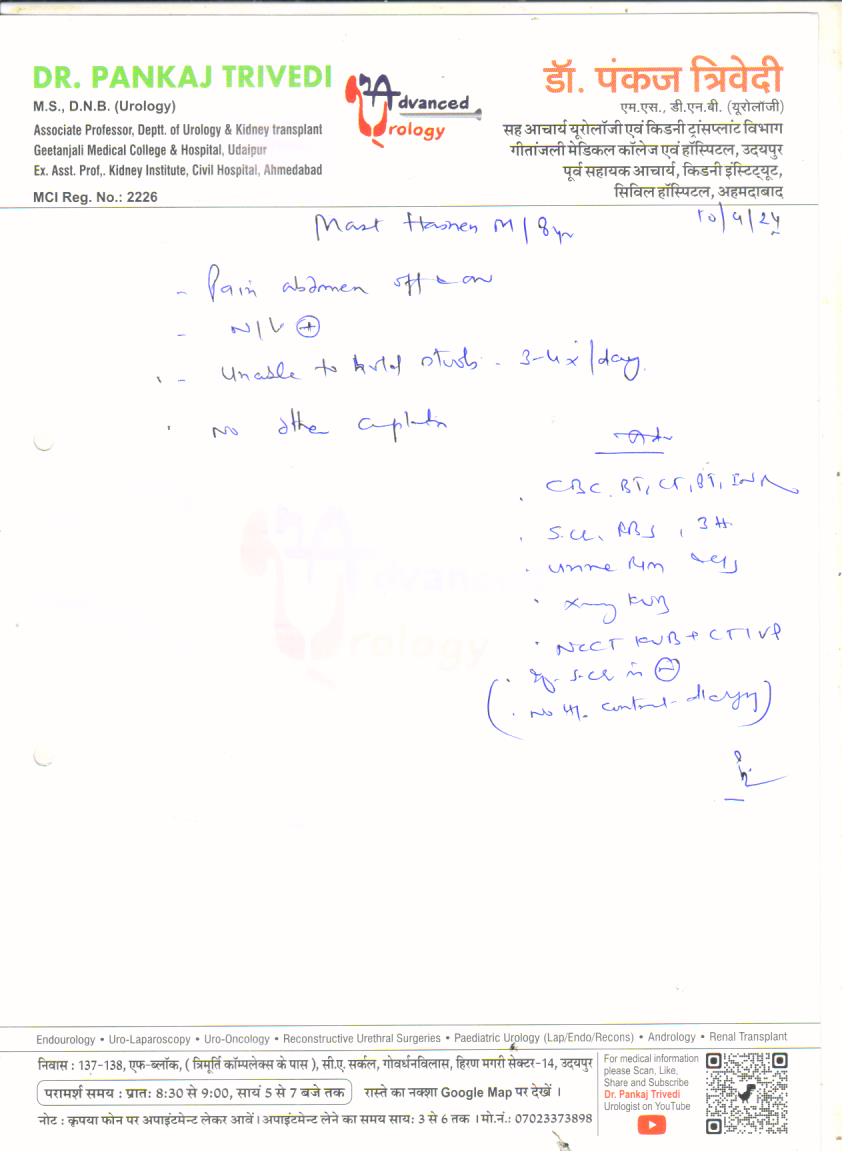 DR. PANKAJ TRIVEDI
M.S., D.N.B. (Urology)
Associate Professor, Deptt. of Urology & Kidney transplant
Geetanjali Medical College & Hospital, Udaipur
Ex. Asst. Prof,. Kidney Institute, Civil Hospital, Ahmedabad
MCI Reg. No.: 2226
Advanced
Urology
डॉ. पंकज त्रिवेदी
एम.एस., डी.एन.बी. (यूरोलॉजी)
सह आचार्य यूरोलॉजी एवं किडनी ट्रांसप्लांट विभाग
गीतांजली मेडिकल कॉलेज एवं हॉस्पिटल, उदयपुर
पूर्व सहायक आचार्य, किडनी इंस्टिट्यूट,
सिविल हॉस्पिटल, अहमदाबाद
Mast M / 8 yr
10/4/24
- Pain abdomen off & on
- N/V +
- Unable to hold stools - 3-4x/day.
No other
Adv
CBC, BT, CT, PT, INR
S.Cr, RBS,
Urine R/M
X-ray KUB
NCCT KUB + CT IVP
S.Cr is
No contrast allergy
Advanced
Urology
Endourology • Uro-Laparoscopy • Uro-Oncology • Reconstructive Urethral Surgeries • Paediatric Urology (Lap/Endo/Recons) • Andrology • Renal Transplant
निवास : 137-138, एफ-ब्लॉक, ( त्रिमूर्ति कॉम्पलेक्स के पास ), सी.ए. सर्कल, गोवर्धनविलास, हिरण मगरी सेक्टर-14, उदयपुर
परामर्श समय : प्रातः 8:30 से 9:00, सायं 5 से 7 बजे तक रास्ते का नक्शा Google Map पर देखें ।
नोट : कृपया फोन पर अपाइंटमेन्ट लेकर आवें । अपाइंटमेन्ट लेने का समय सायः 3 से 6 तक । मो.नं.: 07023373898
For medical information
please Scan, Like,
Share and Subscribe
Dr. Pankaj Trivedi
Urologist on YouTube